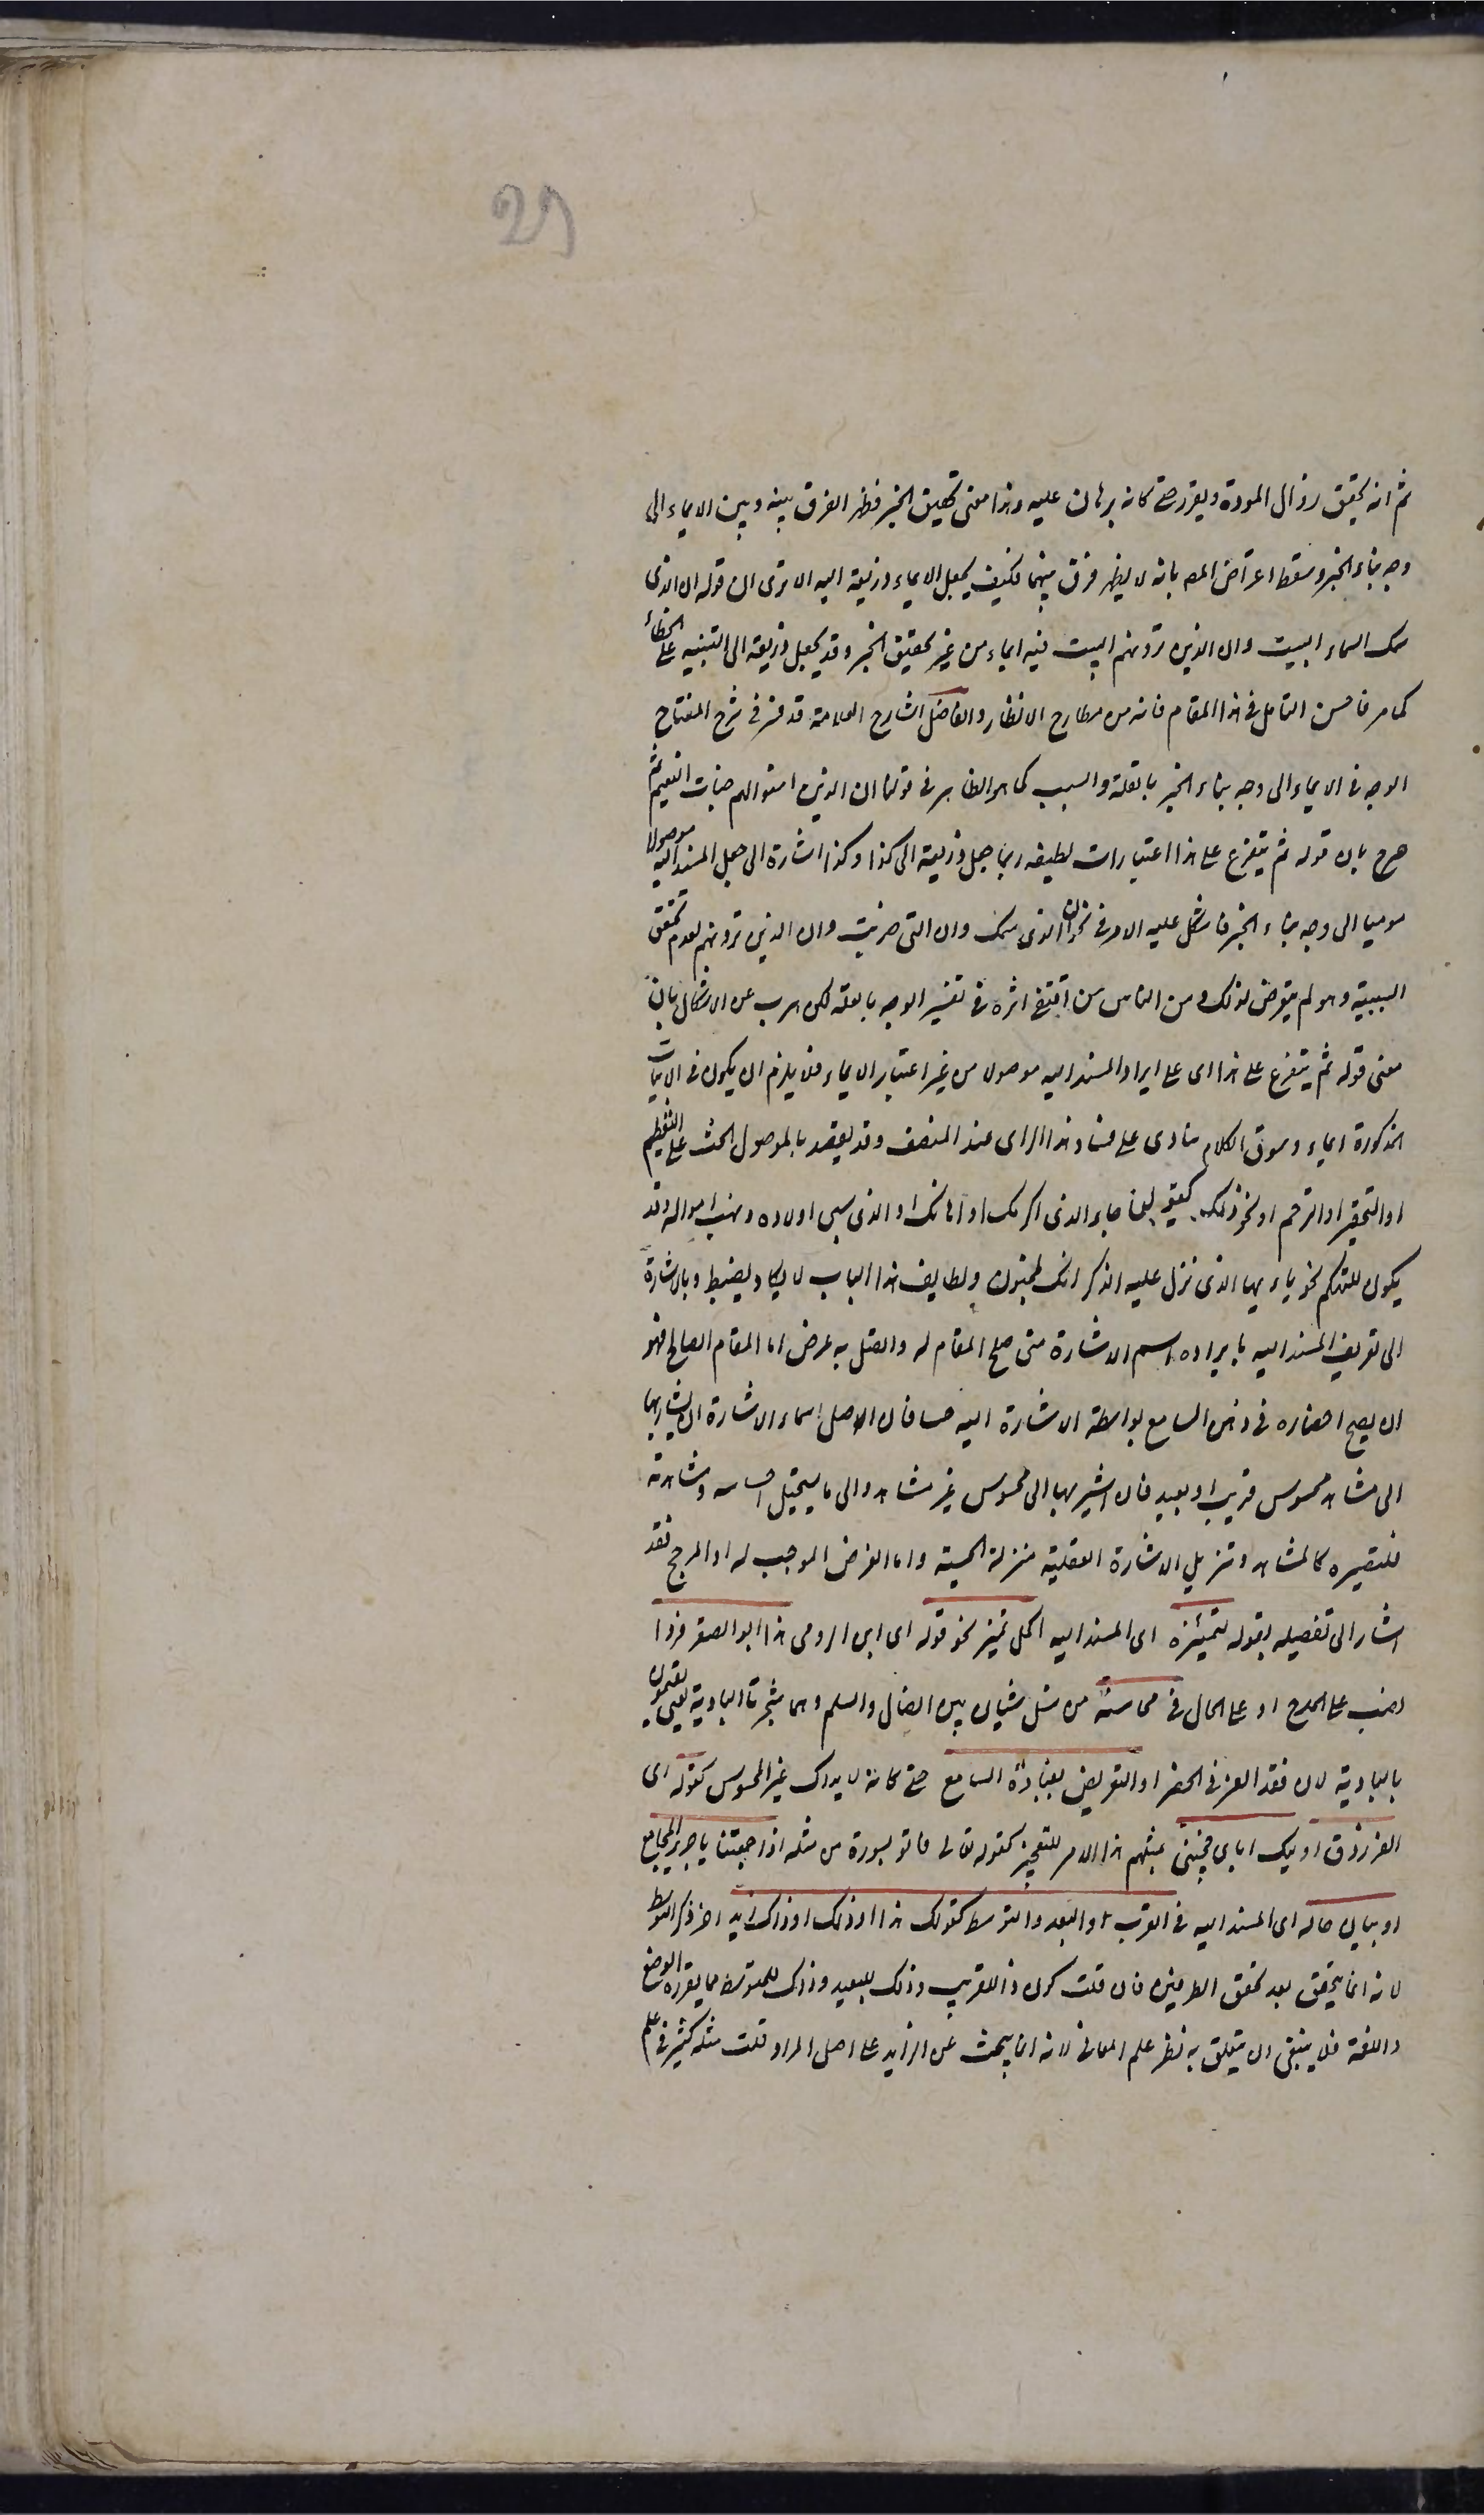 29
ثم انه يحقق زوال المودة ويقرره حتى كانه برهان عليه وهذا معنى تحقيق الخبر فظهر الفرق بينه وبين الايماء الى
وجه بناء الخبر وسقط اعتراض المص بانه لا يظهر فرق بينهما فكيف يجعل الايماء ذريعة اليه الا ترى ان قوله ان الذى
سمك السماء البيت وان الذين ترونهم البيت فيه ايماء من غير تحقيق الخبر وقد يجعل ذريعة الى التنبيه على الخطاء
كما مر فاحسن التامل فى هذا المقام فانه من مطارح الانظار والفاضل الشارح العلامة قد فسر فى شرح المفتاح
الوجه فى الايماء الى وجه بناء الخبر بالعلة والسبب كما هو الظاهر فى قولنا ان الذين امنوا لهم جنات النعيم ثم
صرح بان قوله ثم يتفرع على هذا اعتبارات لطيفة ربما جعل ذريعة الى كذا وكذا اشارة الى جعل المسند اليه موصولا
موميا الى وجه بناء الخبر فاشكل عليه الامر فى نحو ان الذى سمك وان التى ضربت وان الذين ترونهم لعدم تحقق
السببية وهو لم يتعرض لذلك ومن الناس من اقتفى اثره فى تفسير الوجه بالعلة لكن هرب عن الاشكال بان
معنى قوله ثم يتفرع على هذا اى على ايراد المسند اليه موصولا من غير اعتبار الايماء فلا يلزم ان يكون فى الابيات
المذكورة ايماء وسوق الكلام ينادى على فساد هذا الراى عند المنصف وقد يقصد بالموصول الحث على التعظيم
او التحقير او الترحم او نحو ذلك كقولنا جاءك الذى اكرمك او اهانك او الذى سبى اولاده ونهب امواله وقد
يكون للتهكم نحو يا ايها الذى نزل عليه الذكر انك لمجنون ولطايف هذا الباب لا يكاد يضبط وبالاشارة
الى تعريف المسند اليه بايراده اسم الاشارة متى صلح المقام له واتصل به غرض اما المقام الصالح فهو
ان يصح احضاره فى ذهن السامع بواسطة الاشارة اليه حسا فان الاصل اسماء الاشارة ان يشار بها
الى مشاهد محسوس قريب او بعيد فان اشير بها الى محسوس غير مشاهد والى ما يستحيل احساسه ومشاهدته
فلتصييره كالمشاهد وتنزيل الاشارة العقلية منزلة الحسية واما الغرض الموجب له او المرجح فقد
اشار الى تفصيله بقوله لتمييزه اى المسند اليه اكمل تمييز نحو قوله اى ابن الرومى هذا ابو الصقر فردا
نصب على المدح او على الحال فى محاسنه من نسل شيبان بين الضال والسلم وهما شجرتا البادية يعنى يقيمون
بالبادية لان فقد العز فى الحضر او التعريض بغباوة السامع حتى كانه لا يدرك غير المحسوس كقوله اى
الفرزدق اوليك اباى فجئنى بمثلهم هذا الامر للتعجيز كقوله تعالى فاتوا بسورة من مثله اذا جمعتنا يا جرير المجامع
او بيان حاله اى المسند اليه فى القرب او البعد والتوسط كقولك هذا او ذلك او ذاك زيد اخر ذكر التوسط
لانه انما يتحقق بعد تحقق الطرفين فان قلت كون ذا للقريب وذلك للبعيد وذاك للمتوسط مما يقرره الوضع
واللغة فلا ينبغى ان يتعلق به نظر علم المعانى لانه انما يبحث عن الزايد على اصل المراد قلت مثله كثير فى علم